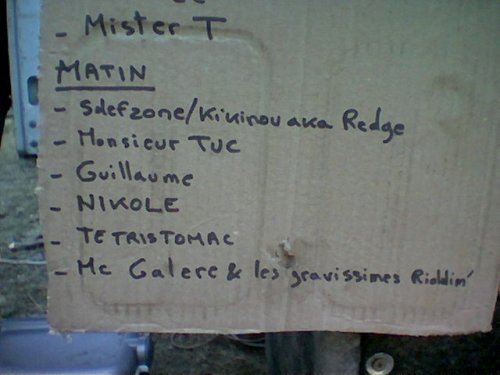 - Mister T
MATIN
- Sdefzone/Kikinou aka Redge
- Monsieur TUC
- Guillaume
- NIKOLE
- TETRISTOMAC
- Mc Galere & les gravissimes Riddim'